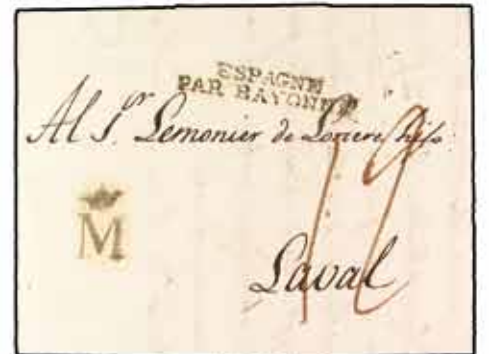 ESPAGNE
PAR BAYONNE
Al S.or Lemonier de Lorriere hijo
M
Laval